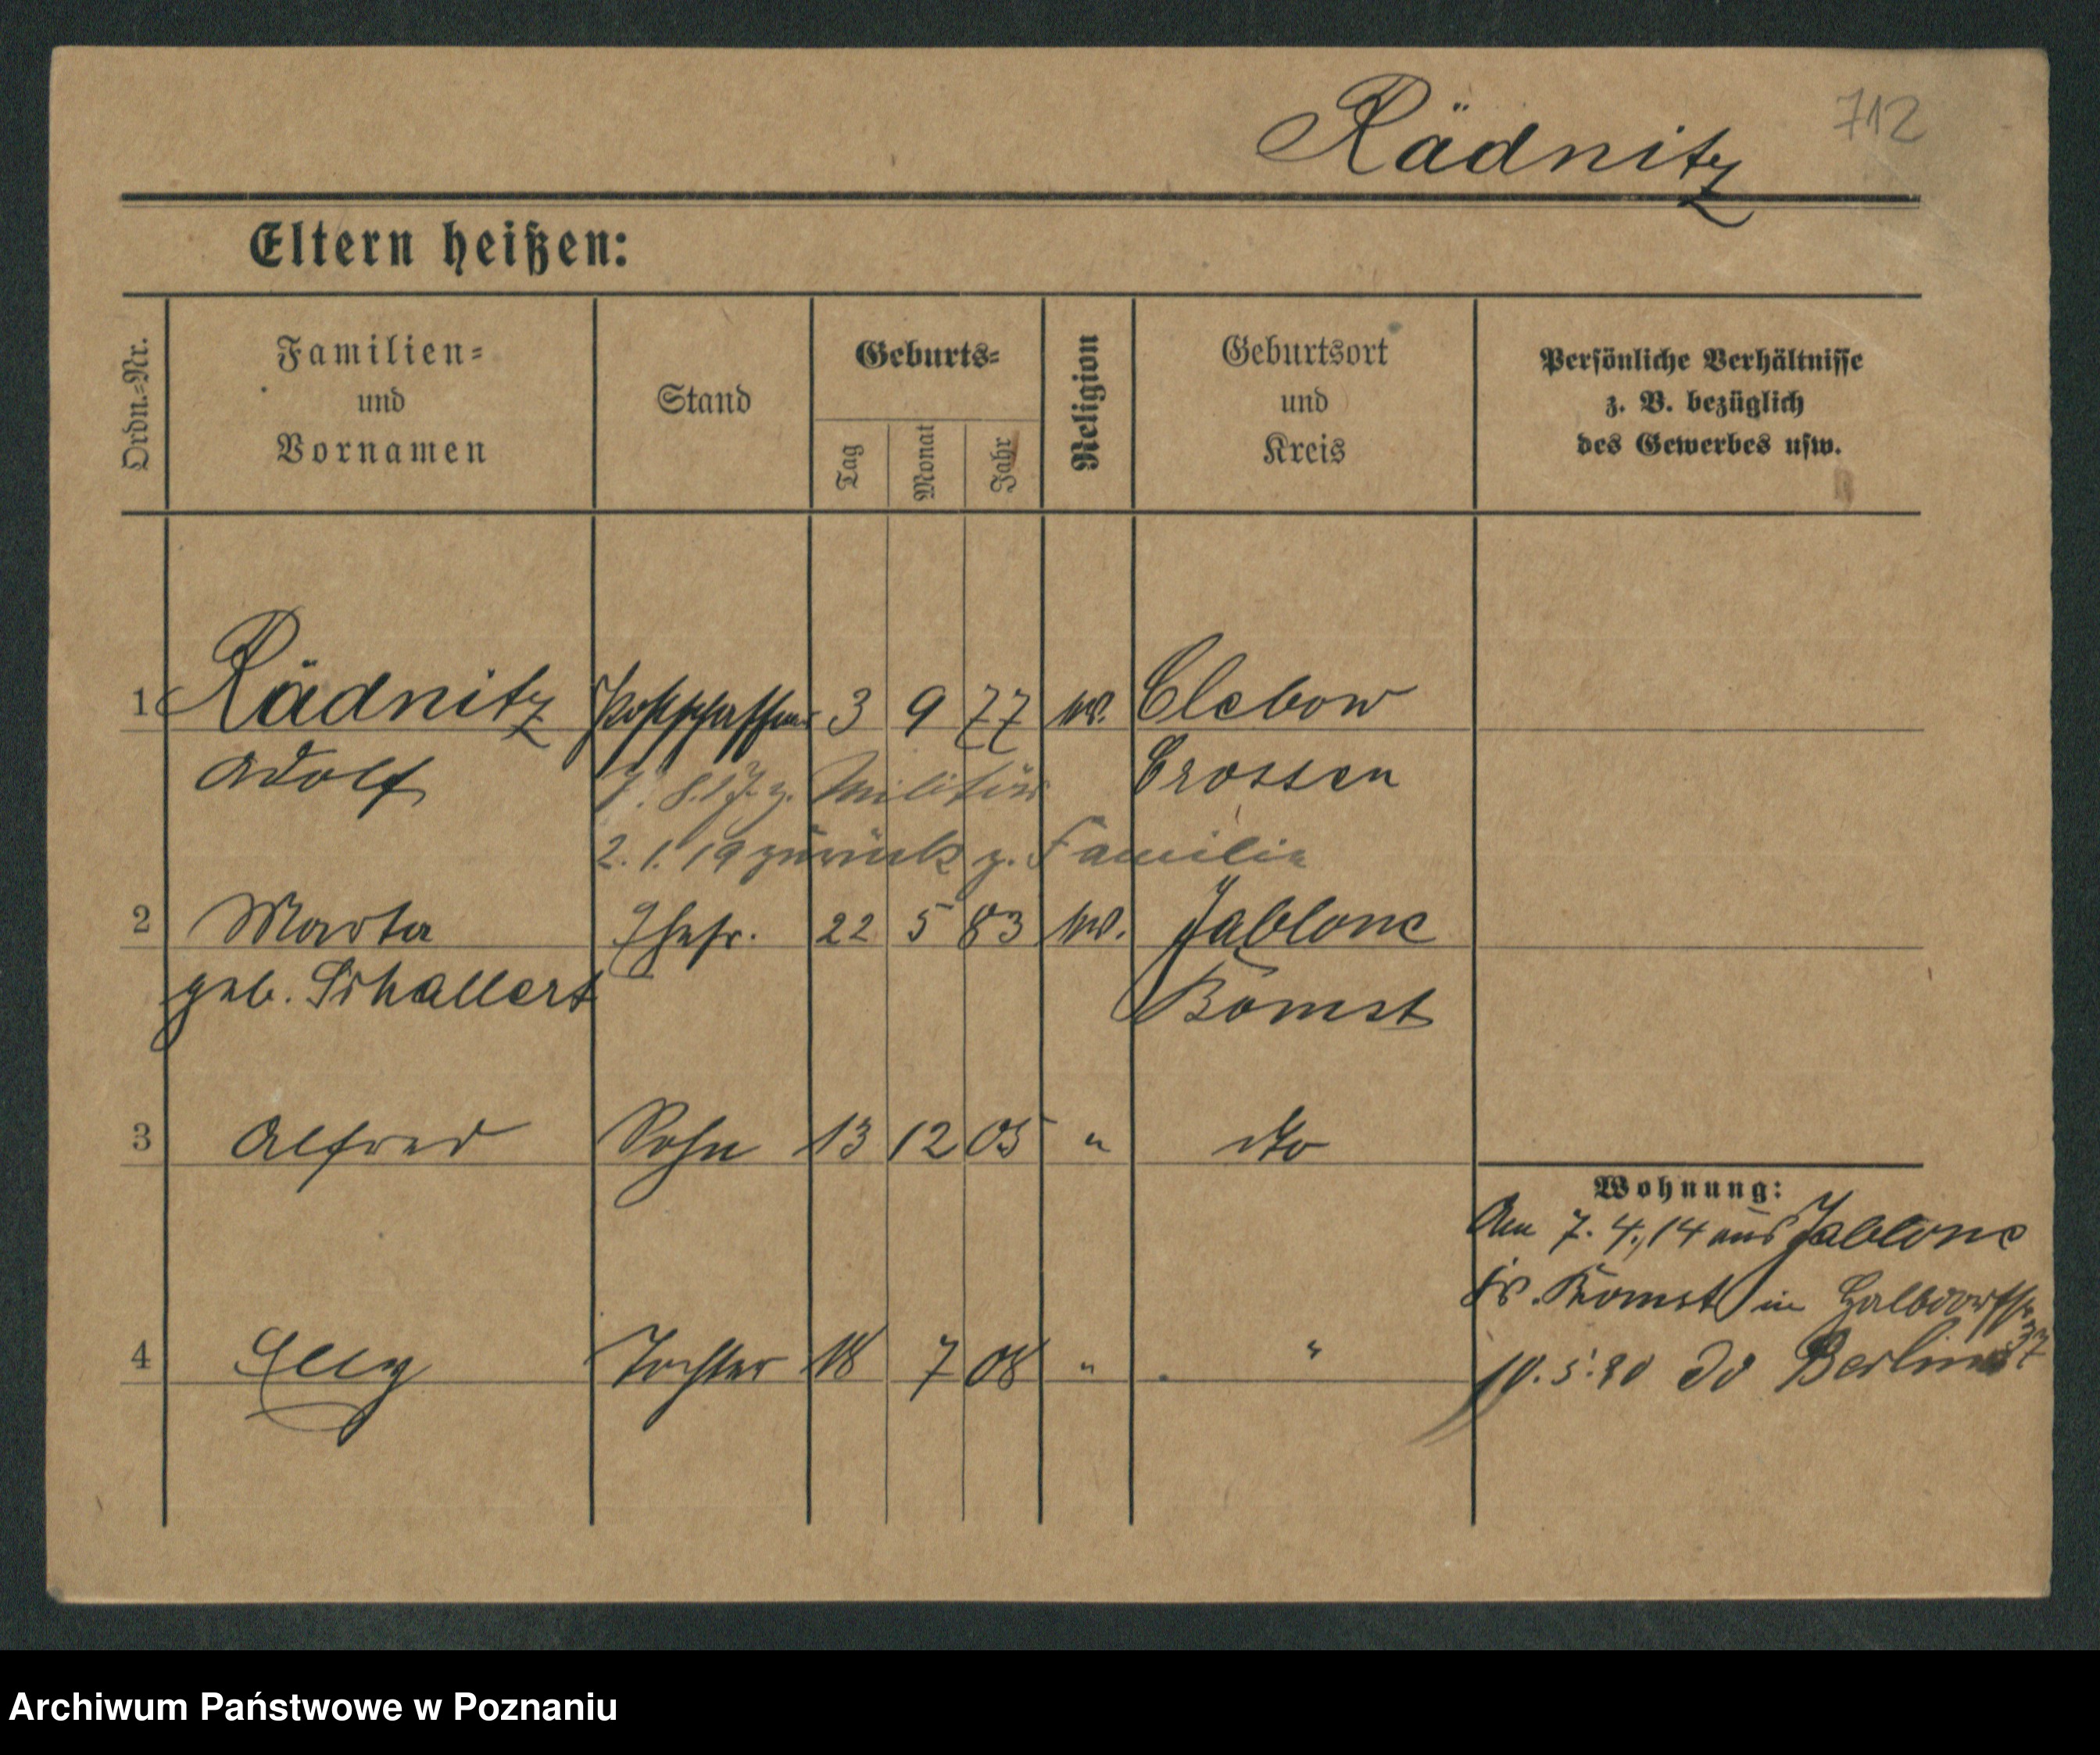 712
Rädnitz
Eltern heißen:
Ordn.=Nr.
Familien=
und
Vornamen
Stand
Geburts=
Tag
Monat
Jahr
Religion
Geburtsort
und
Kreis
Persönliche Verhältnisse
z. B. bezüglich
des Gewerbes usw.
1 Rädnitz Postschaffner 3 9 77 ev. Clebow
Adolf Crossen
7. 8. 17 z. Militär
2. 1. 19 zurück z. Familie
2 Marta Ehefr. 22 5 83 ev. Jablone
geb. Schallert Bomst
3 Alfred Sohn 13 12 05 " dto
4 Elly Tochter 18 7 08 " "
Wohnung:
Am 7. 4. 14 aus Jablone
Kr. Bomst in Halbdorfstr.
37
10. 5. 20 Berlin
Archiwum Państwowe w Poznaniu